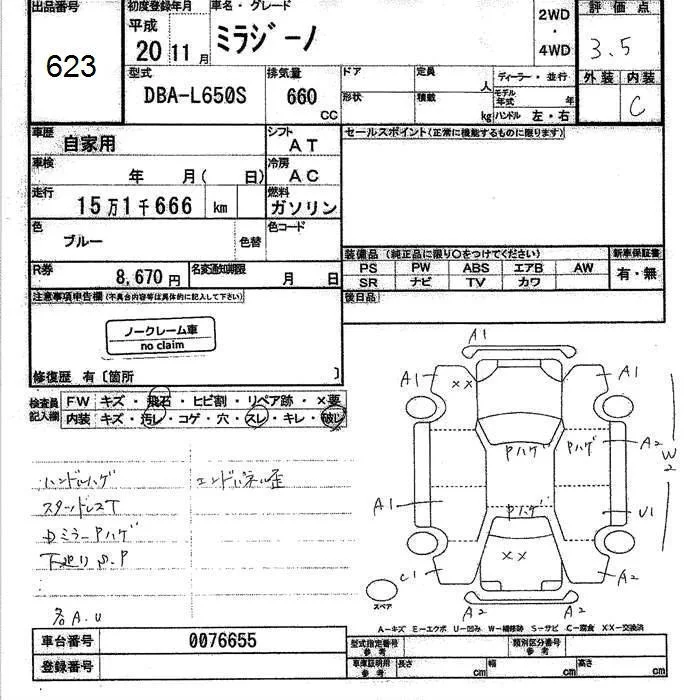 出品番号
623
初度登録年月
平成
20 11月
車名・グレード
ミラジーノ
2WD
・
4WD
評価点
3.5
外装 内装
C
型式
DBA-L650S
排気量
660
CC
ドア
形状
定員
人
積載
kg
ディーラー・並行
モデル年式 年
ハンドル 左・右
車歴
自家用
シフト
AT
セールスポイント(正常に機能するものに限ります)
車検
年 月( 日)
冷房
AC
走行
15万1千666 km
燃料
ガソリン
色
ブルー
色替
色コード
装備品(純正品に限り○をつけてください)
新車保証書
PS PW ABS エアB AW
SR ナビ TV カワ
有・無
R券
8,670円
名変通知期限
月 日
後日品
注意事項申告欄(不具合内容等は具体的に記入して下さい)
ノークレーム車
no claim
修復歴 有〔箇所 〕
検査員
記入欄
FW キズ・飛石・ヒビ割・リペア跡・×要
内装 キズ・汚レ・コゲ・穴・スレ・キレ・破レ
ハンドルハゲ
エンドパネル歪
スタッドレスT
DミラーPハゲ
下廻りS.P
各A.U
A1
A1
××
A1
Pハゲ
Pハゲ
A2
W2
A1
Pハゲ
U1
××
C1
A2
A2
A2
スペア
A-キズ E-エクボ U-凹み W-補修跡 S-サビ C-腐食 XX-交換済
車台番号
0076655
型式指定番号
参考
類別区分番号
参考
登録番号
車庫証明用
参考
長さ cm
幅 cm
高さ cm